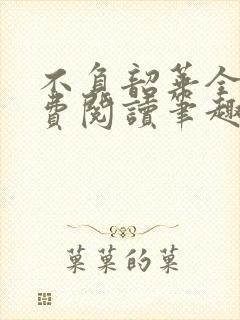 不負韶華全
費閱讀筆趣
菓菓的菓